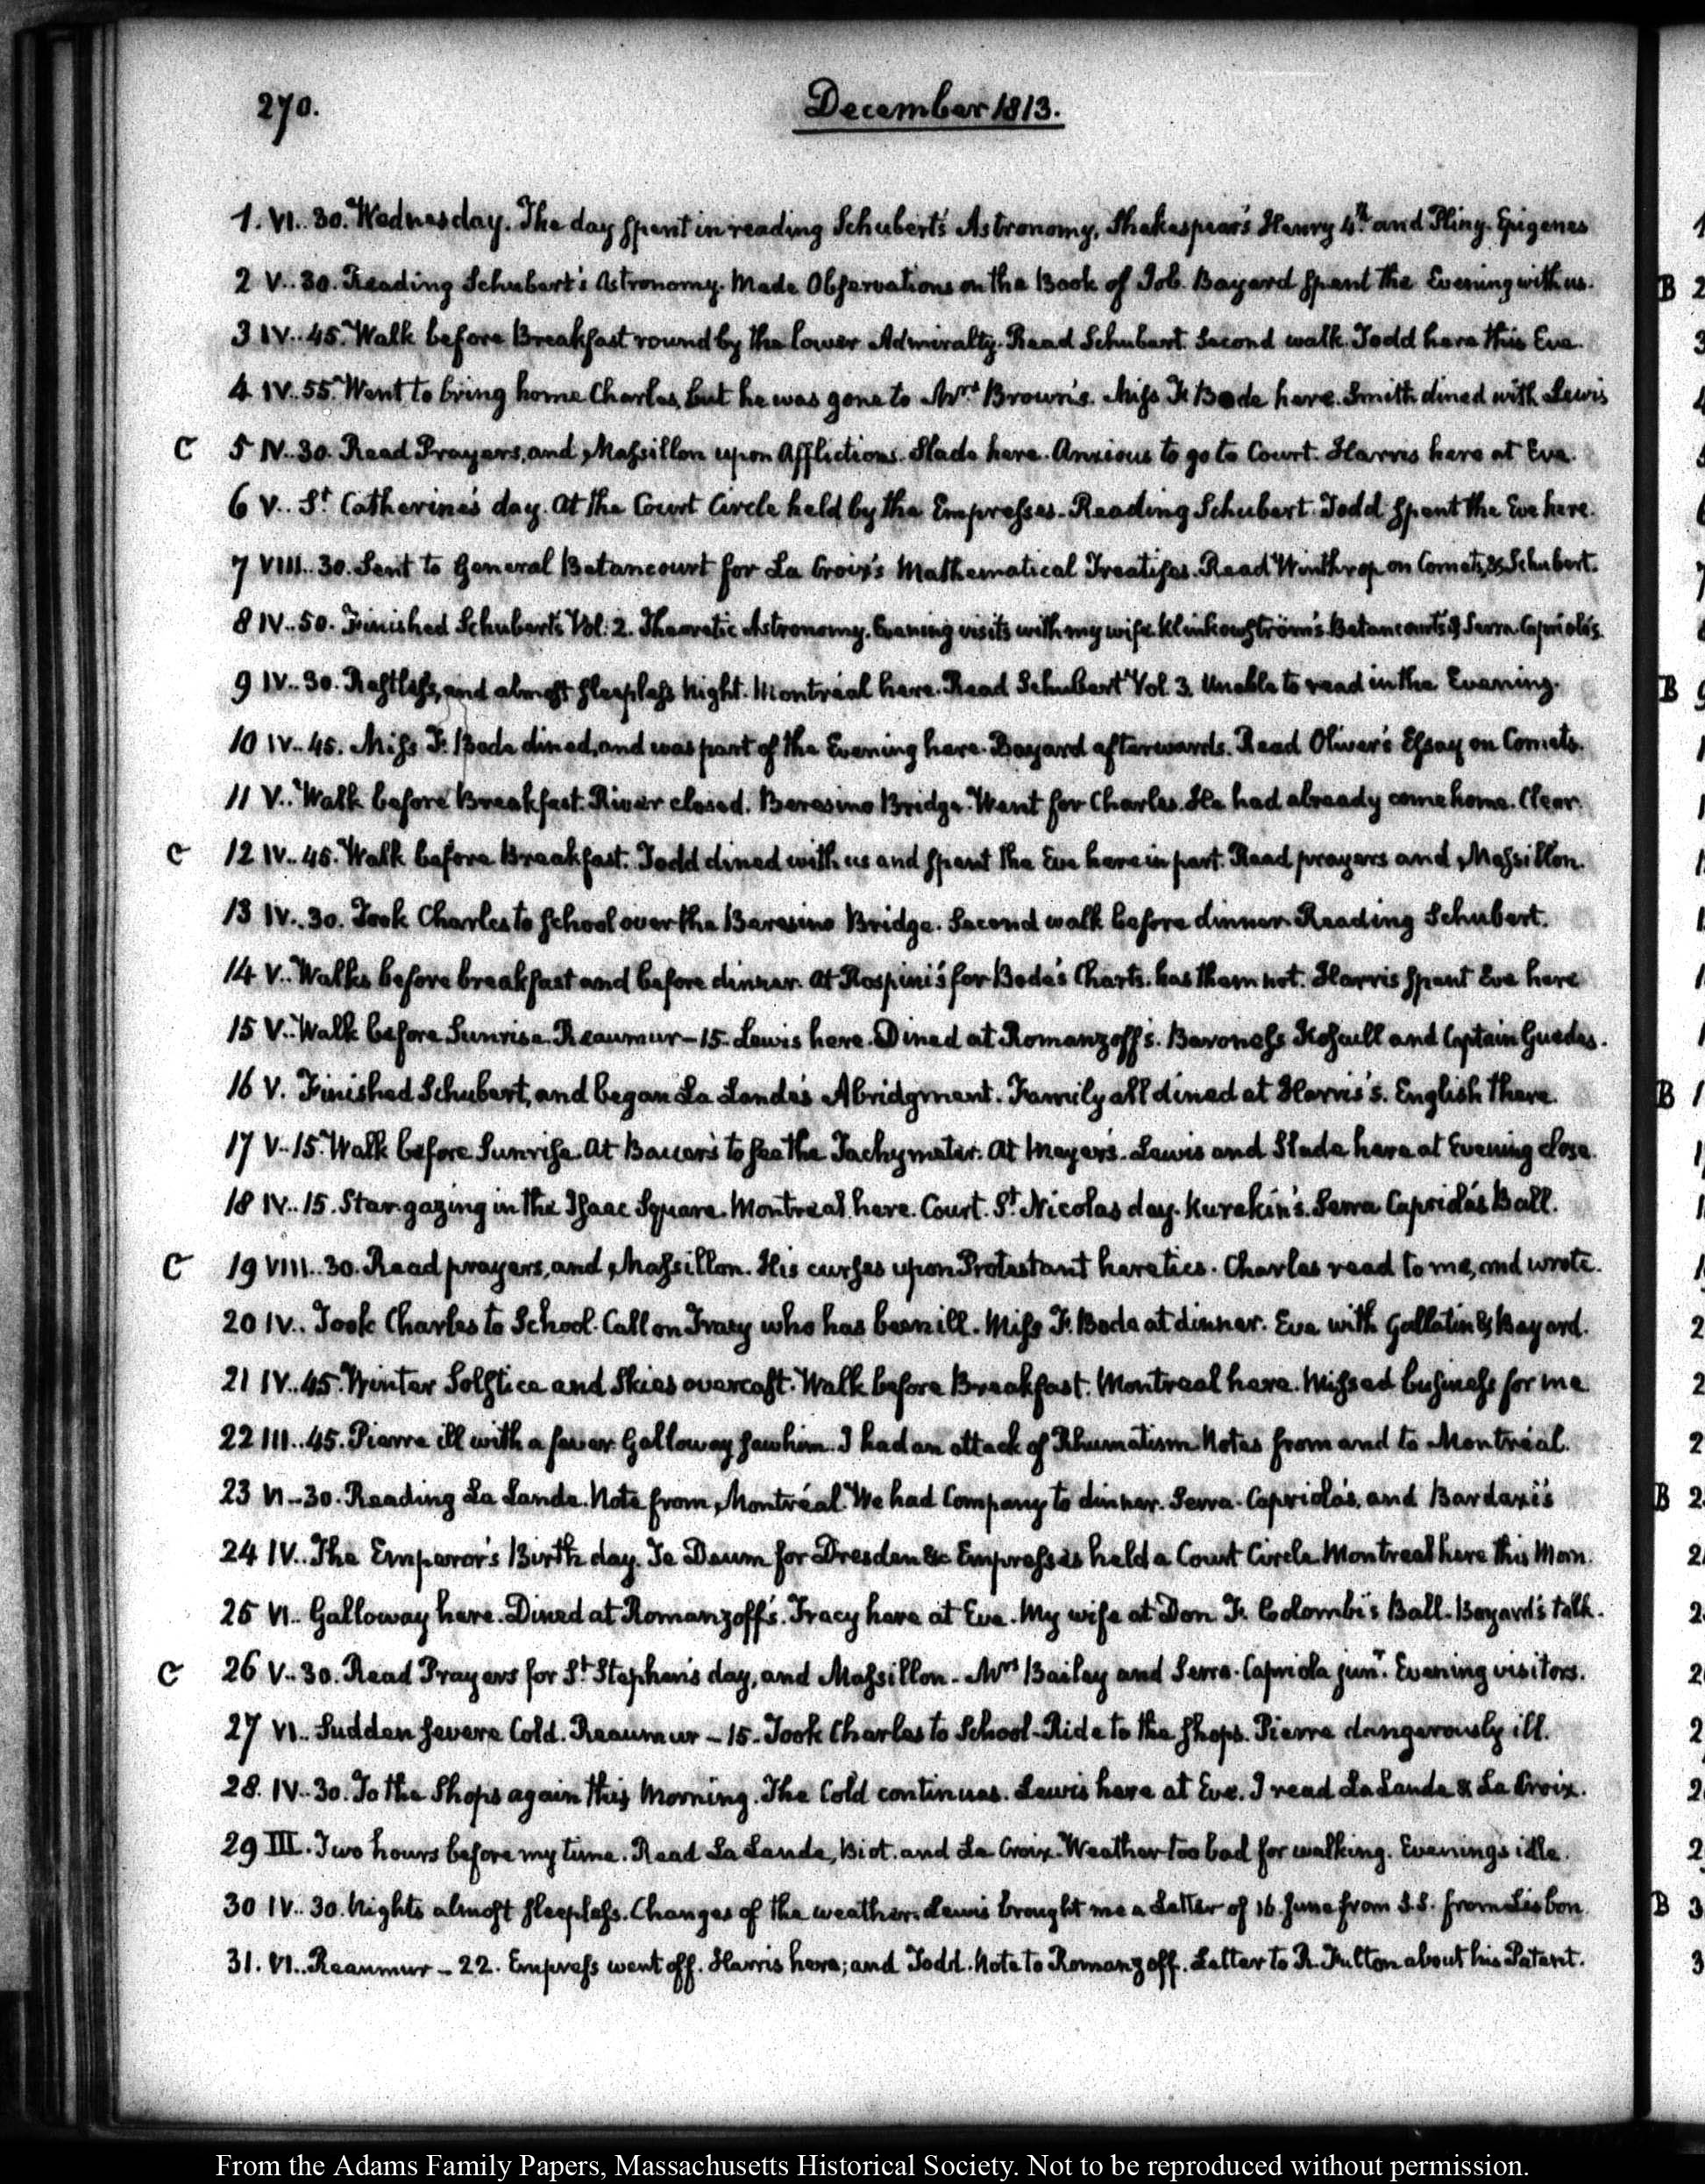 270. December 1813.
1. VI.. 30. Wednesday. The day spent in reading Schubert's Astronomy, Shakespear's Henry 4th. and Pliny. Epigenes
2 V.. 30. Reading Schubert's Astronomy. Made Observations on the Book of Job. Bayard spent the Evening with us.
3 IV.. 45. Walk before Breakfast round by the lower Admiralty. Read Schubert. Second walk. Todd here this Eve.
4 IV.. 55. Went to bring home Charles, but he was gone to Mrs. Brown's. Miss F. Bode here. Smith dined with Lewis
C 5 IV.. 30. Read Prayers, and Massillon upon Afflictions. Slade here. Anxious to go to Court. Harris here at Eve.
6 V.. St. Catherine's day. At the Court Circle held by the Empresses. Reading Schubert. Todd spent the Eve here.
7 VIII.. 30. Sent to General Betancourt for La Croix's Mathematical Treatises. Read Winthrop on Comets, & Schubert.
8 IV.. 50. Finished Schubert's Vol: 2. Theoretic Astronomy. Evening visits with my wife. Klinkowström's. Betancourt's & Serra Capriola's.
9 IV.. 30. Restless, and almost sleepless Night. Montréal here. Read Schubert Vol. 3. Unable to read in the Evening.
10 IV.. 45. Miss F. Bode dined, and was part of the Evening here. Bayard afterwards. Read Oliver's Essay on Comets.
11 V.. Walk before Breakfast. River closed. Beresino Bridge. Went for Charles. He had already come home. Clear.
C 12 IV.. 45. Walk before Breakfast. Todd dined with us and spent the Eve here in part. Read prayers and Massillon.
13 IV.. 30. Took Charles to School over the Beresino Bridge. Second walk before dinner. Reading Schubert.
14 V.. Walks before breakfast and before dinner. At Rospini's for Bode's Charts. has them not. Harris spent Eve here
15 V.. Walk before Sunrise. Reaumur - 15. Lewis here. Dined at Romanzoff's. Baroness and Captain Guedes.
16 V. Finished Schubert, and began La Lande's Abridgment. Family all dined at Harris's. English there.
17 V.. 15. Walk before Sunrise. At Bauer's to see the Tachymeter. At Meyer's. Lewis and Slade here at Evening close.
18 IV.. 15. Star-gazing in the Isaac Square. Montreal here. Court. St. Nicolas day. Kurakin's. Serra Capriola's Ball.
C 19 VIII.. 30. Read prayers, and Massillon. His curses upon Protestant heretics. Charles read to me, and wrote.
20 IV.. Took Charles to School. Call on Tracy who has been ill. Miss F. Bode at dinner. Eve with Gallatin & Bayard.
21 IV.. 45. Winter Solstice and Skies overcast. Walk before Breakfast. Montreal here. Missed business for me
22 III.. 45. Pierre ill with a fever. Galloway saw him. I had an attack of Rhumatism. Notes from and to Montréal.
23 VI.. 30. Reading La Lande. Note from Montréal. We had Company to dinner. Serra-Capriola's, and Bardaxi's
24 IV.. The Emperor's Birth day. Te Deum for Dresden &c. Empresses held a Court Circle. Montreal here this Morn.
25 VI.. Galloway here. Dined at Romanzoff's. Tracy here at Eve. My wife at Don F. Colombi's Ball. Bayard's talk.
C 26 V.. 30. Read Prayers for St. Stephen's day, and Massillon. Mrs Bailey and Serra-Capriola junr. Evening visitors.
27 VI.. Sudden severe Cold. Reaumur - 15. Took Charles to School. Ride to the shops. Pierre dangerously ill.
28. IV.. 30. To the Shops again this Morning. The Cold continues. Lewis here at Eve. I read La Lande & La Croix.
29 III. Two hours before my time. Read La Lande, Biot. and La Croix. Weather too bad for walking. Evenings idle.
30 IV.. 30. Nights almost sleepless. Changes of the weather. Lewis brought me a Letter of 16 June from S.S. from Lisbon.
31. VI.. Reaumur - 22. Empress went off. Harris here; and Todd. Note to Romanzoff. Letter to R. Fulton about his Patent.
From the Adams Family Papers, Massachusetts Historical Society. Not to be reproduced without permission.